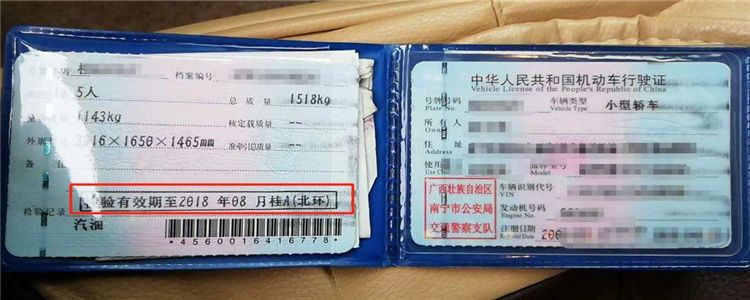 档案编号
5人
总质量
1518kg
1143kg
核定载质量
1650×1465
准牵引总质量
备注
验有效期至2018年08月桂A(北环)
检验记录
汽油
*4560016416778*
中华人民共和国机动车行驶证
Vehicle License of the People's Republic of China
号牌号码
Plate No.
车辆类型
Vehicle Type
小型轿车
所有人
住址
Address
使用
Model
广西壮族自治区
南宁市公安局
交通警察支队
车辆识别代号
VIN
发动机号码
Engine No.
注册日期